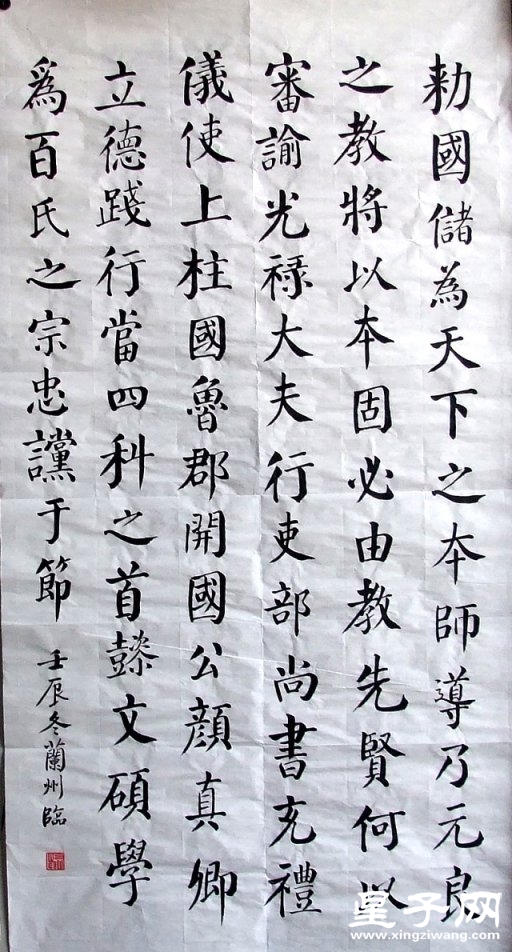 勅國儲為天下之本師導乃元良
之教將以本固必由教先賢何以
審諭光禄大夫行吏部尚書充禮
儀使上柱國魯郡開國公顔真卿
立德踐行當四科之首懿文碩學
爲百氏之宗忠讜于節
壬辰冬蘭州臨
星子网
www.xingziwang.com